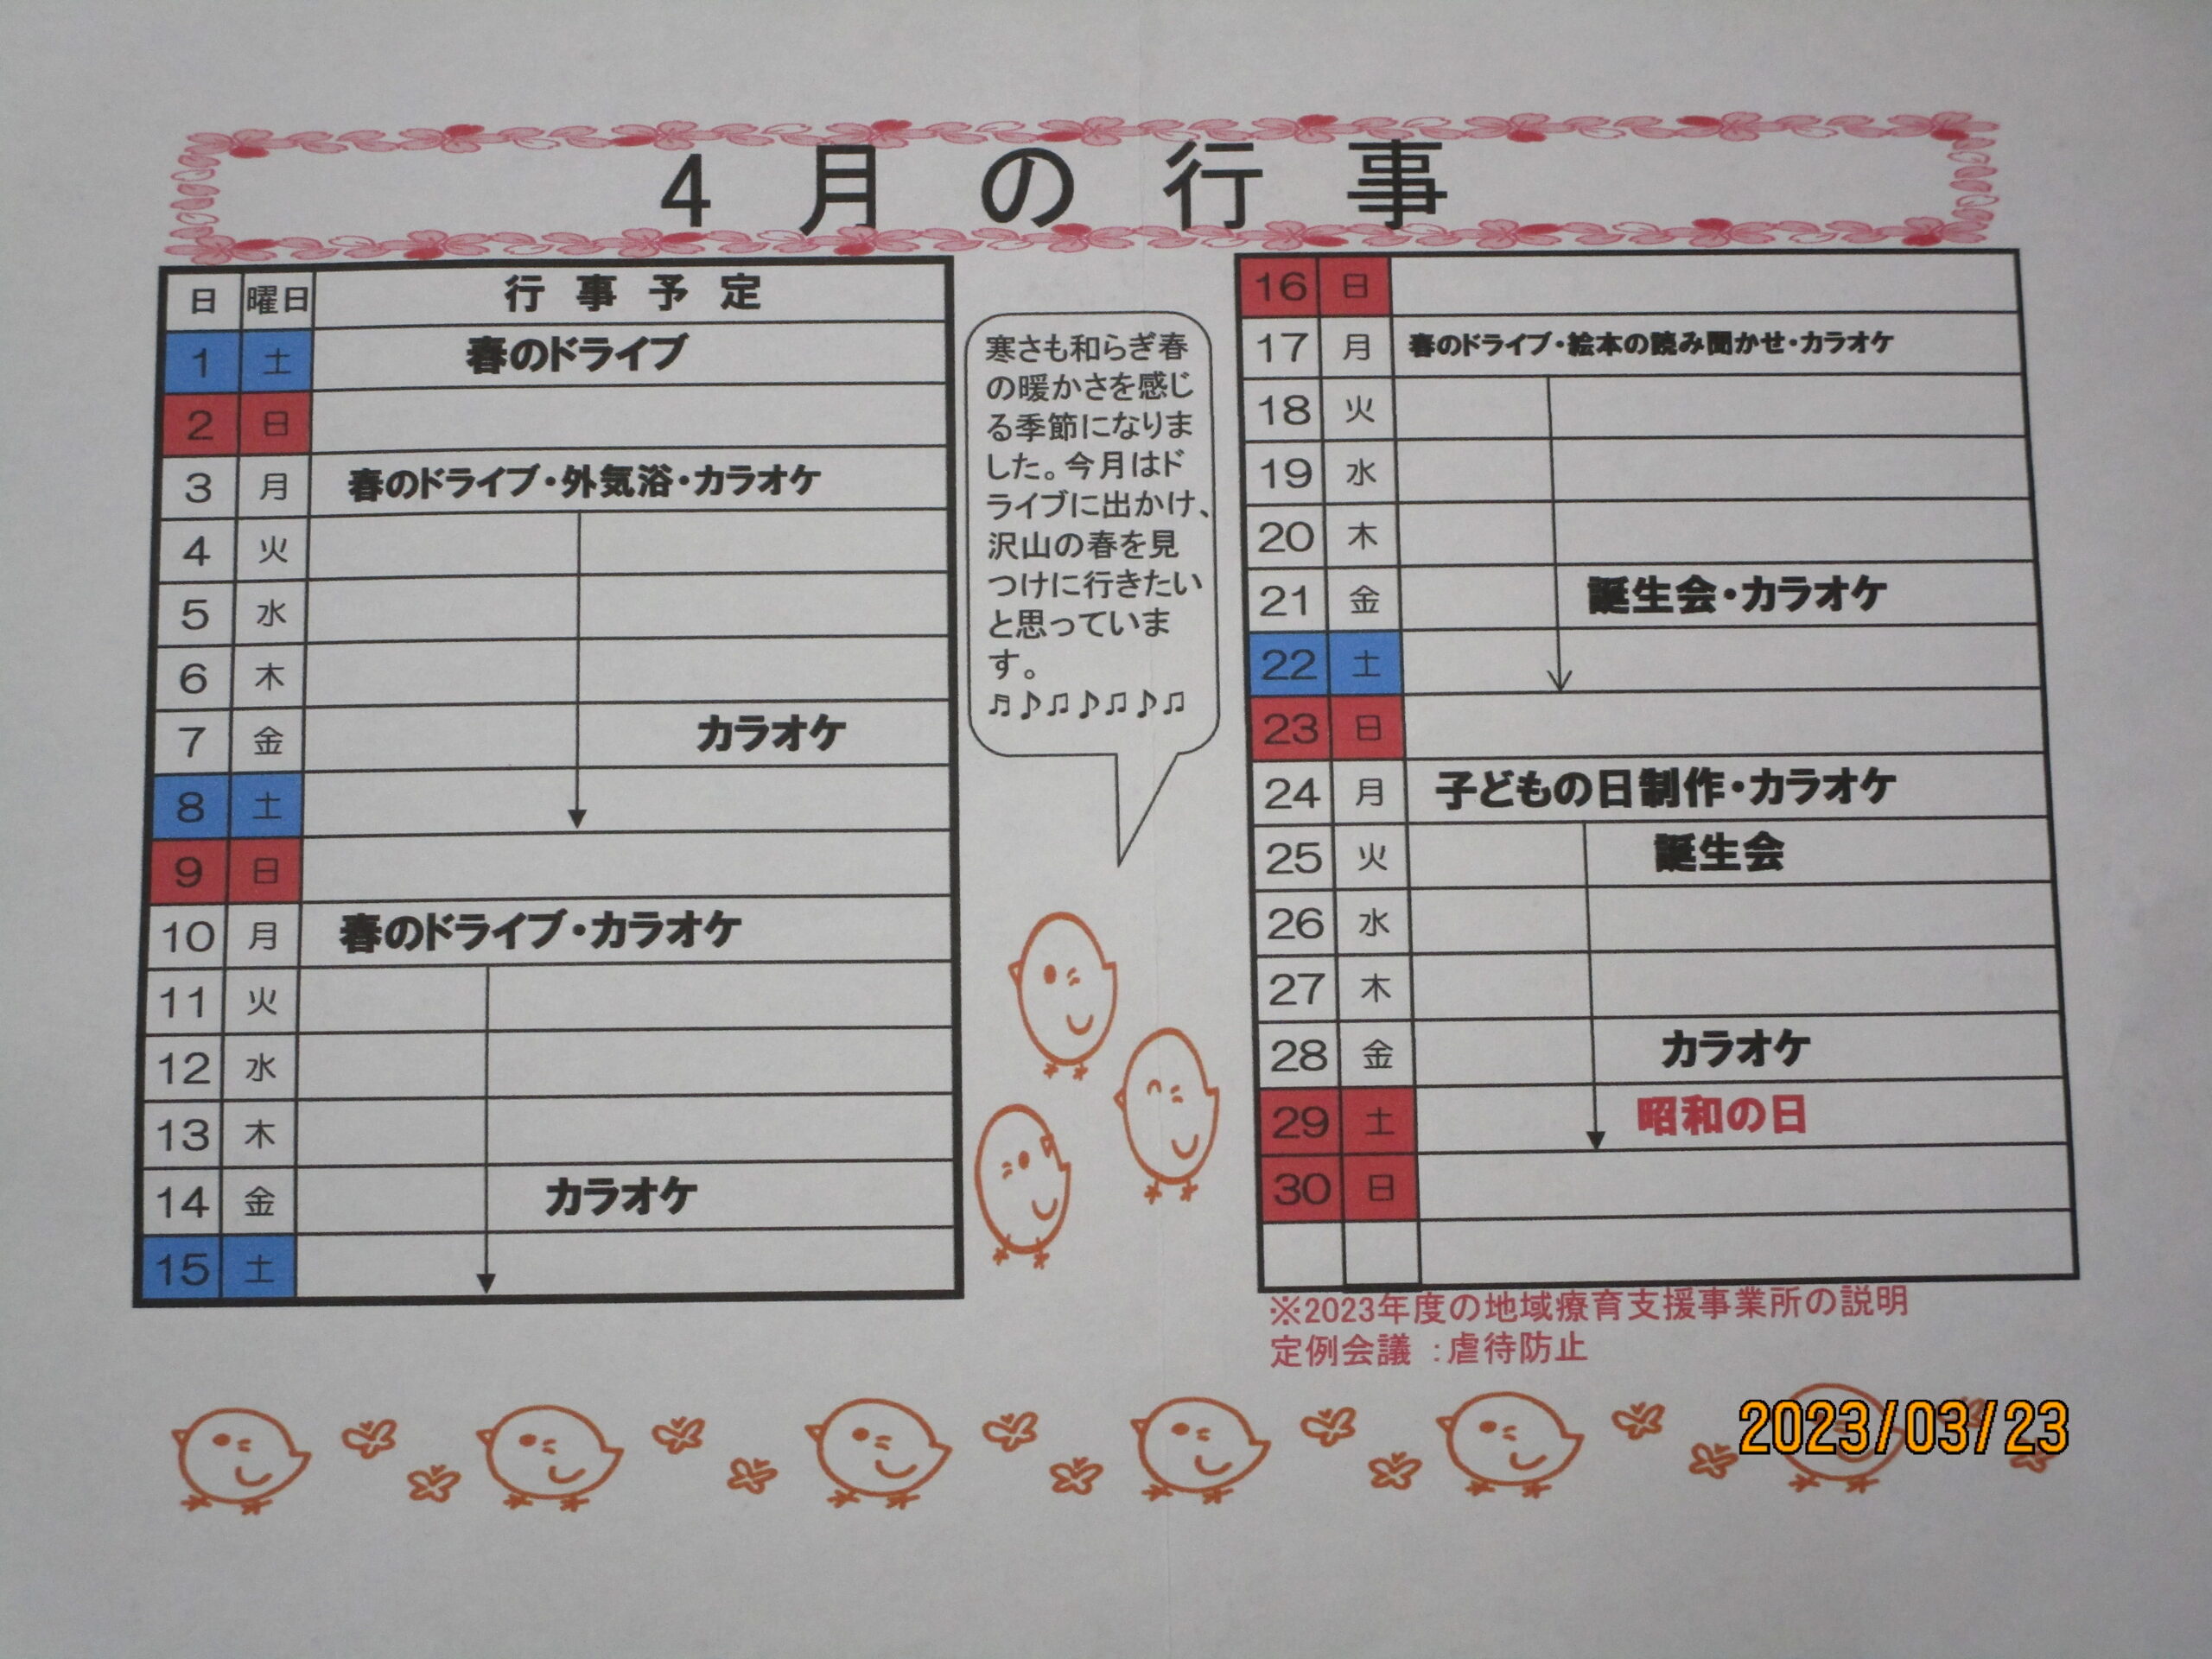 4月の行事
日 曜日 行事予定
1 土 春のドライブ
2 日
3 月 春のドライブ・外気浴・カラオケ
4 火
5 水
6 木
7 金 カラオケ
8 土
9 日
10 月 春のドライブ・カラオケ
11 火
12 水
13 木
14 金 カラオケ
15 土
寒さも和らぎ春
の暖かさを感じ
る季節になりま
した。今月はド
ライブに出かけ、
沢山の春を見
つけに行きたい
と思っていま
す。
♬♪♫♪♫♪♫
16 日
17 月 春のドライブ・絵本の読み聞かせ・カラオケ
18 火
19 水
20 木
21 金 誕生会・カラオケ
22 土
23 日
24 月 子どもの日制作・カラオケ
25 火 誕生会
26 水
27 木
28 金 カラオケ
29 土 昭和の日
30 日
※2023年度の地域療育支援事業所の説明
定例会議 :虐待防止
2023/03/23